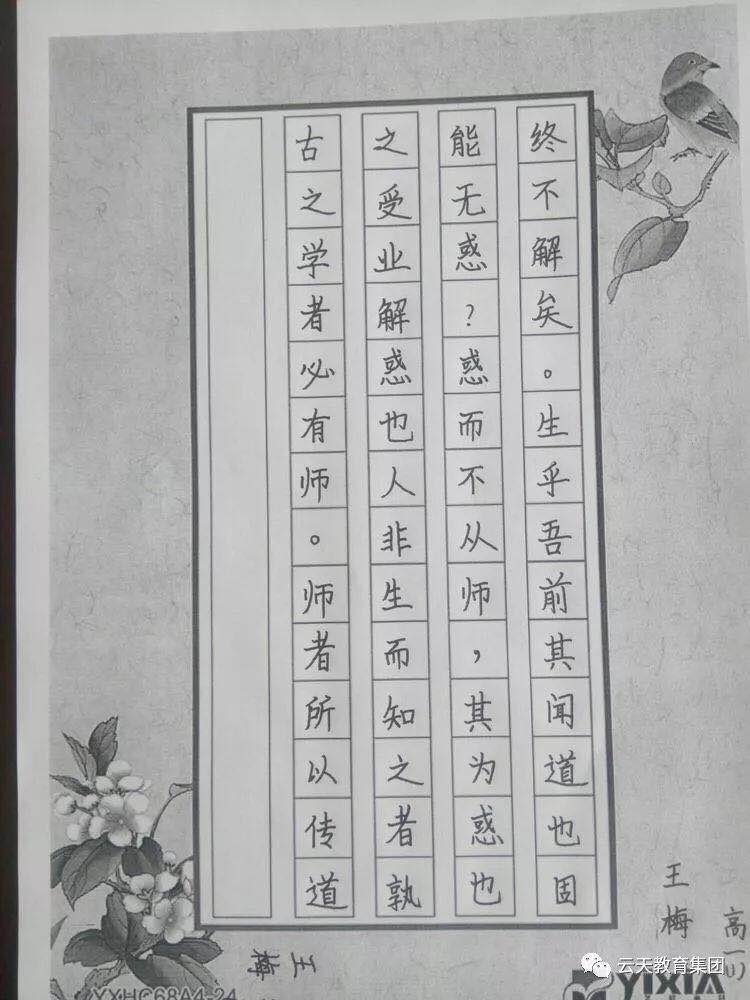 古之学者必有师。师者所以传道
之受业解惑也人非生而知之者孰
能无惑？惑而不从师，其为惑也
终不解矣。生乎吾前其闻道也固
高一(1)
王梅
王梅
YXHC68A4-24
云天教育集团